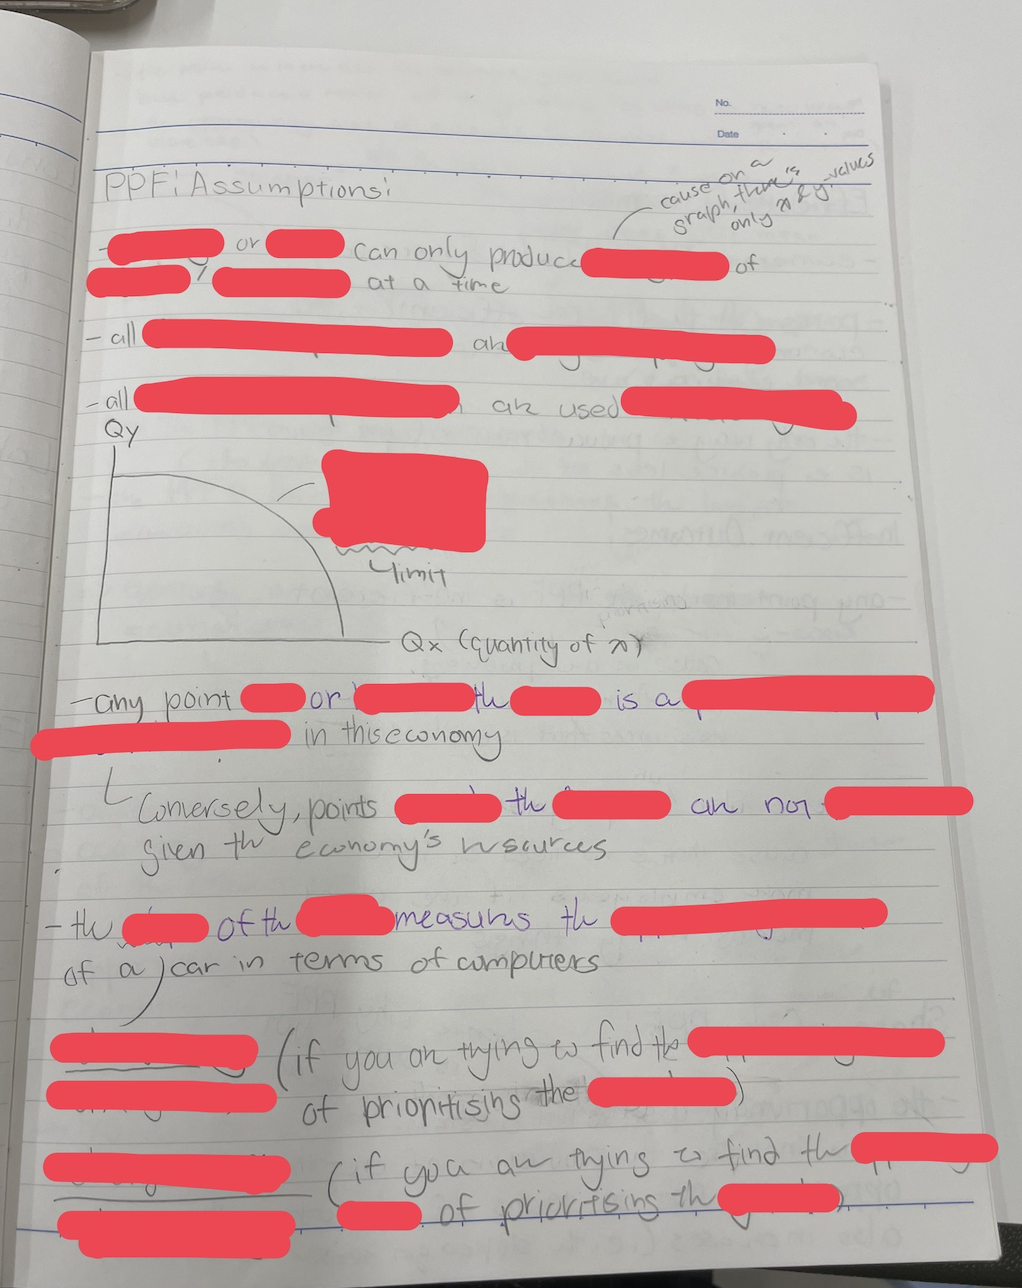 No.
Date
PPF: Assumptions:
cause on a
graph, there's
only x & y-values
- or can only produce of
/ at a time
- all are
- all are used
Qy
limit
Qx (quantity of x)
- any point or the is a
in this economy
Conversely, points the are not
given the economy's resources
- the of the measures the
of a car in terms of computers
(if you are trying to find the
of prioritising the )
(if you are trying to find the
of prioritising the )